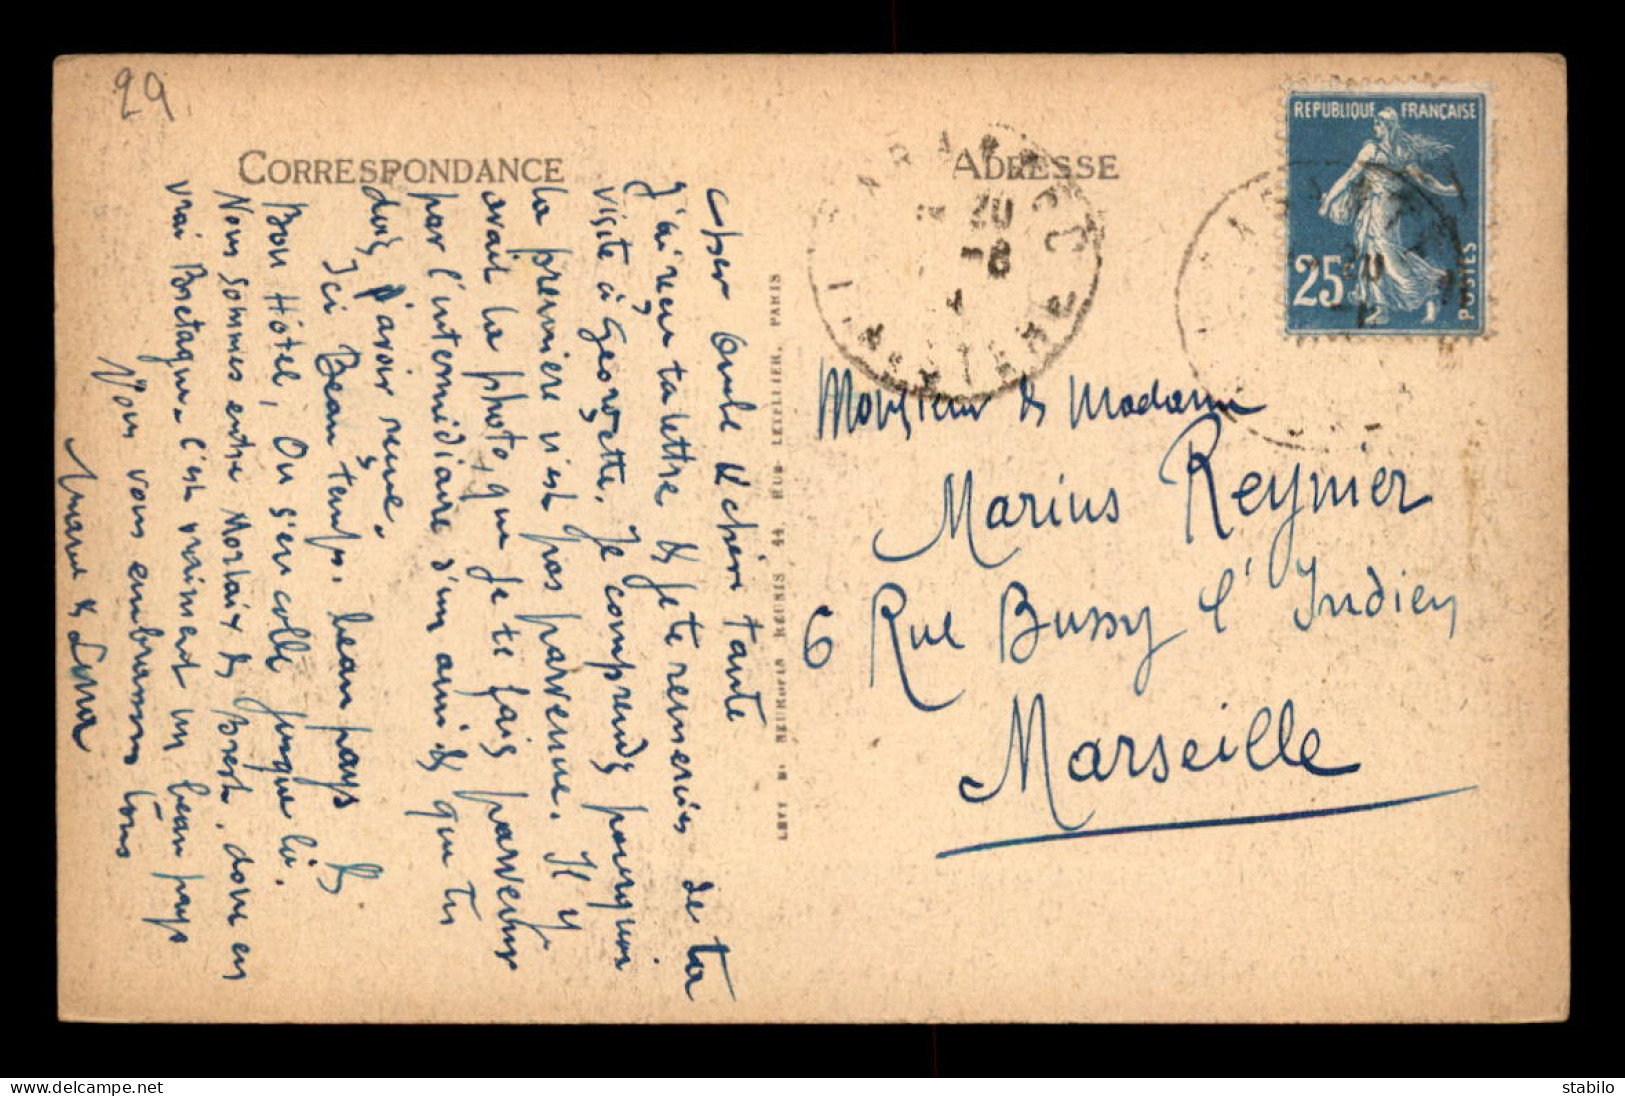 29
CORRESPONDANCE
cher oncle & chère tante
J'ai reçu ta lettre & je te remercie de ta
visite à Georgette. Je comprends pourquoi
la première n'est pas parvenue. Il y
avait la photo, que je te fais parvenir
par l'intermédiaire d'un ami & que tu
dois avoir reçue.
Ici Beau temps, beau pays &
Bon Hôtel, On s'en colle jusque là.
Nous sommes entre Morlaix & Brest, donc en
vrai Bretagne. C'est vraiment un beau pays
Nous vous embrassons tous
& Léna
LEVY & NEURDEIN RÉUNIS, 44, RUE LETELLIER, PARIS
ADRESSE
20
8
FINISTERE
REPUBLIQUE FRANÇAISE
25
POSTES
Monsieur & Madame
Marius Reynier
6 Rue Bussy l'Indien
Marseille
stabilo